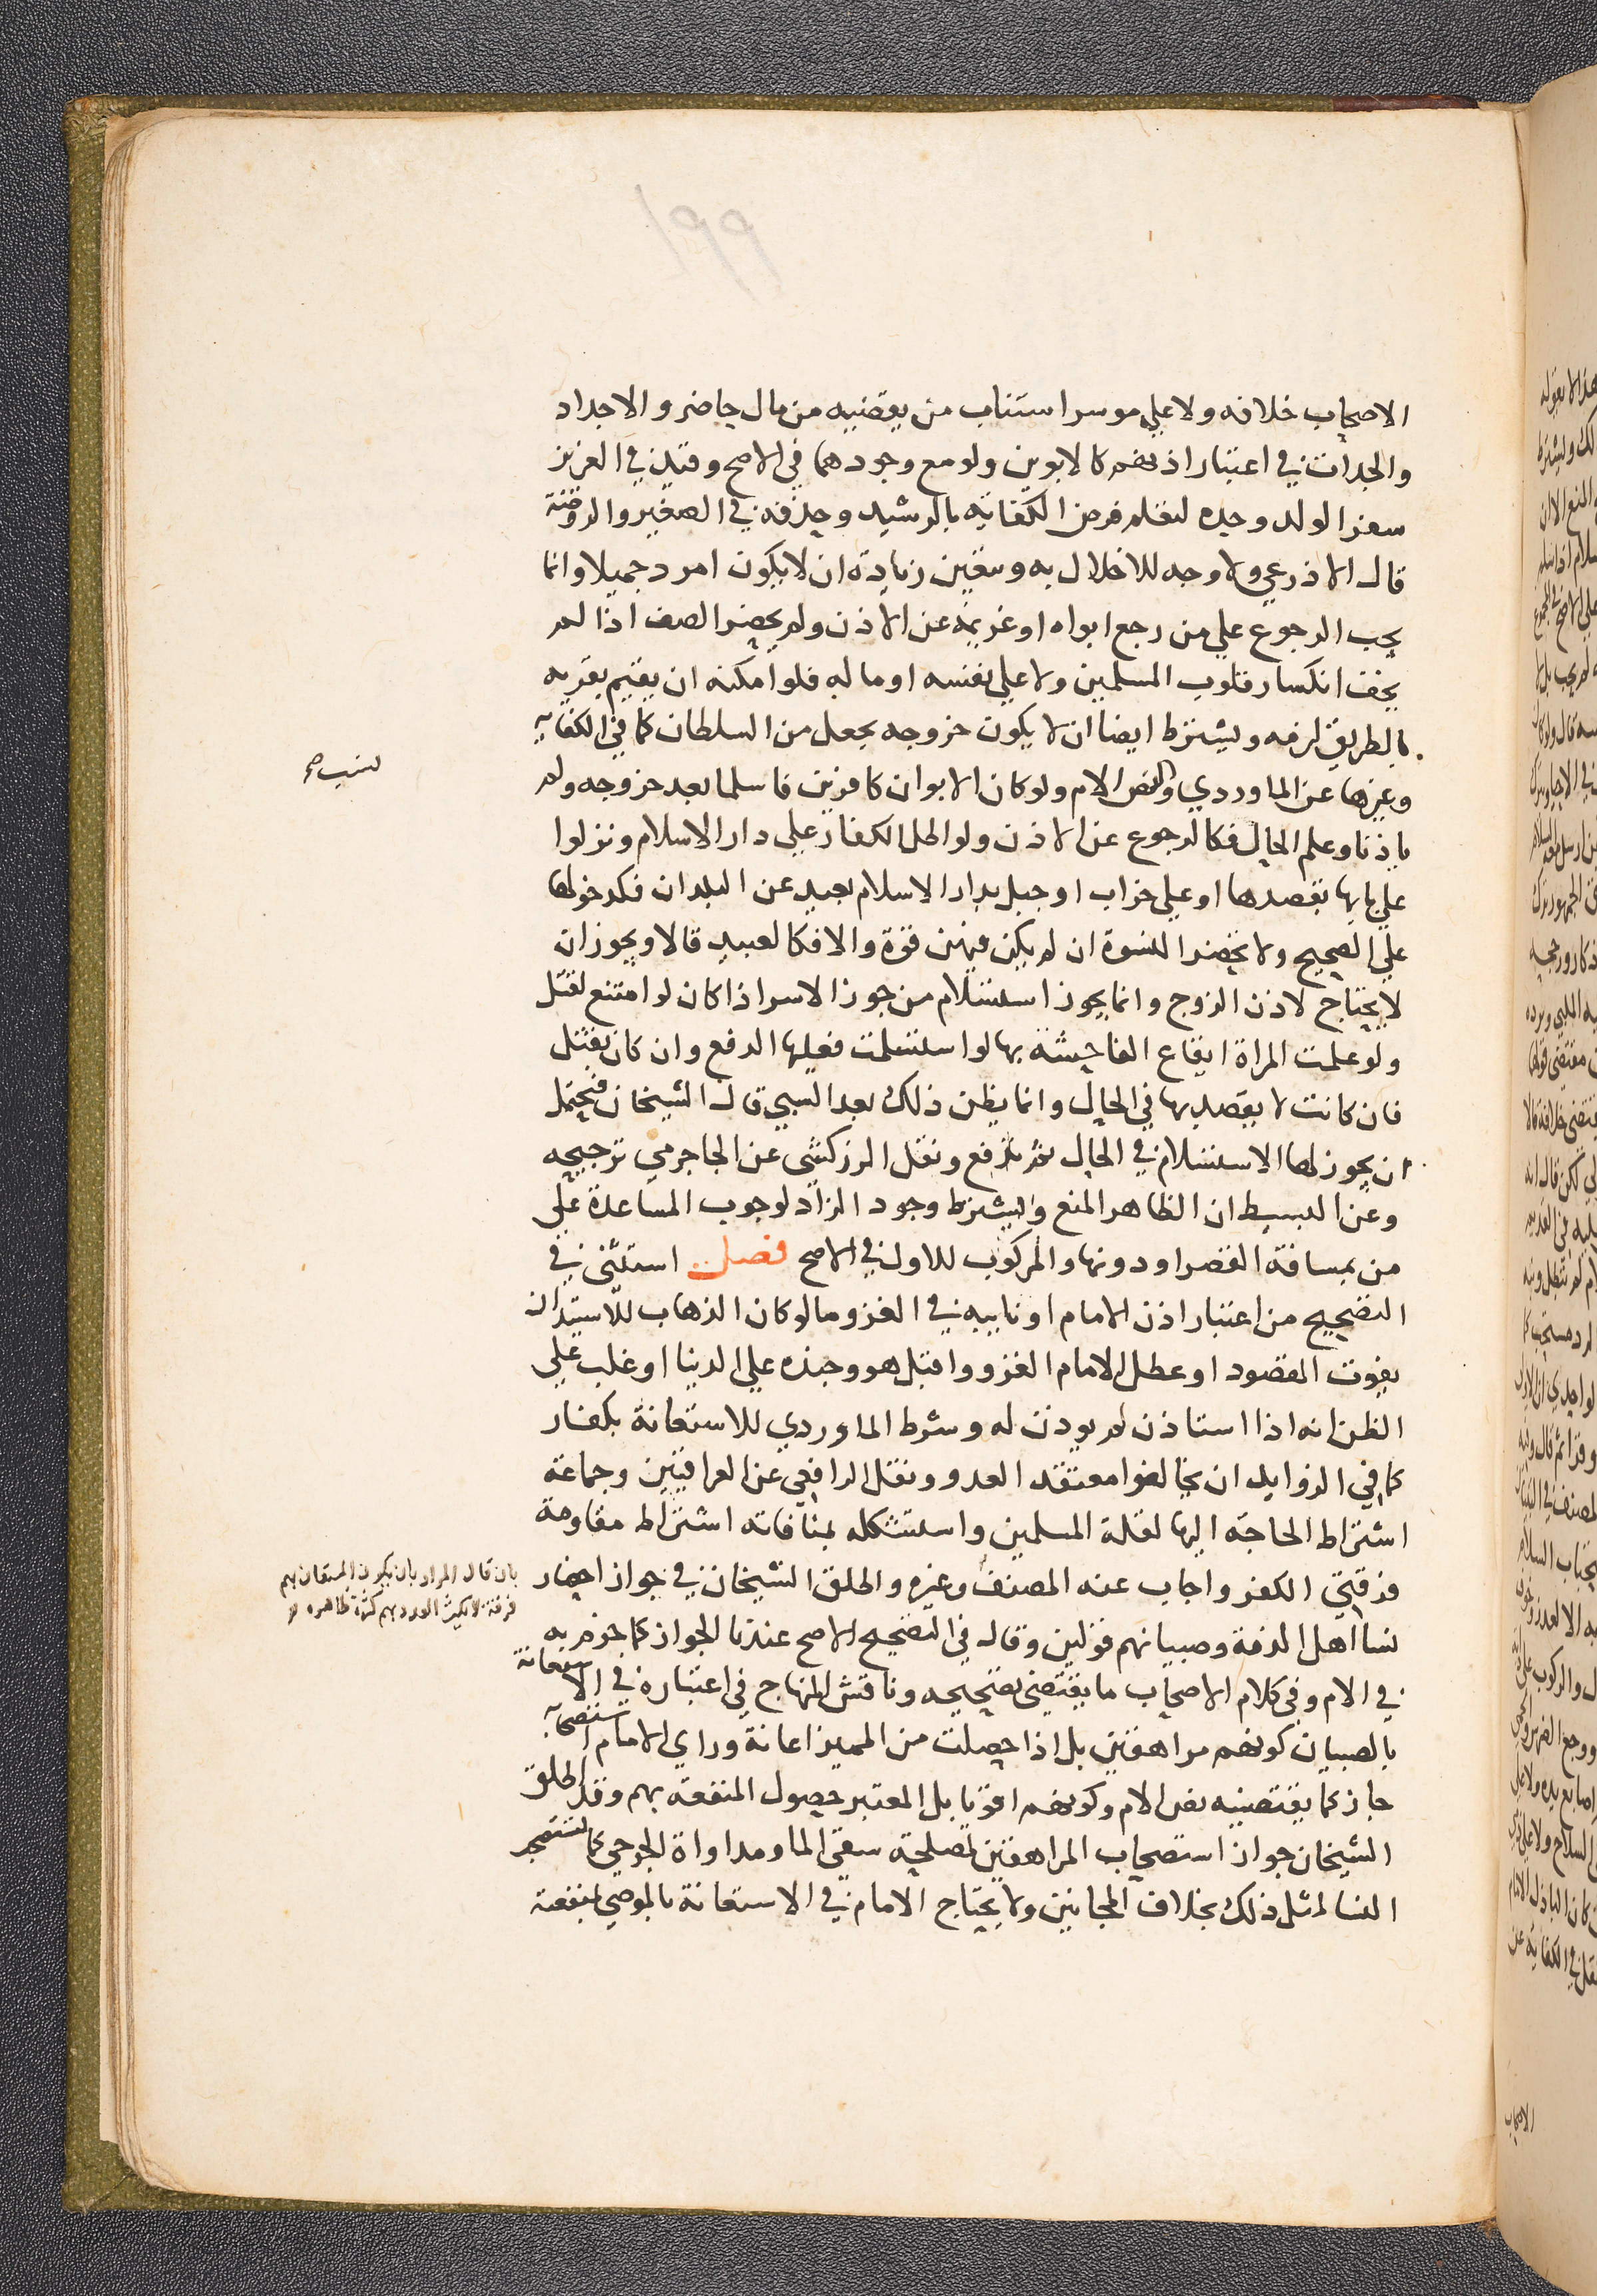 ١٩٩
الاصحاب خلافه ولا علي موسر استناب من يقضيه من مال حاضر والاجداد
والجدات في اعتبار اذنهم كالابوين ولو مع وجودهما في الاصح وقيد في العزيز
سفر الولد وحده لتعلم فرض الكفاية بالرشيد وحذفه في الصغير والروضة
قال الاذرعي ولا وجه للاخلال به ويتعين زيادة ان لا يكون امرد جميلا وانما
يجب الرجوع علي من رجع ابواه او غريمه عن الاذن ولم يحضر الصف اذا لم
يخف انكسار قلوب المسلمين ولا علي نفسه او ماله فلو امكنه ان يقيم بقرية
بالطريق لزمه ويشترط ايضا ان لا يكون خروجه بجعل من السلطان كما في الكفاية
وغيرها عن الماوردي ونص الام ولو كان الابوان كافرين فاسلما بعد خروجه ولم
ياذنا وعلم الحال فكالرجوع عن الاذن ولو اطل الكفار علي دار الاسلام ونزلوا
علي بابها بقصدها او علي خراب او جبل بدار الاسلام بعيد عن البلدان فكدخولها
علي الصحيح ولا يحضر النسوة ان لم يكن فيهن قوة والا فكالعبيد قالا ويجوز ان
لا يحتاج لاذن الزوج وانما يجوز استسلام من جوز الاسر اذا كان لو امتنع لقتل
ولو علمت المراة ايقاع الفاحشة بها لو استسلمت فعليها الدفع وان كان بقتل
فان كانت لا يقصد بها في الحال وانما يظن ذلك بعد السبي قال الشيخان فيحتمل
ان يجوز لها الاستسلام في الحال ثم تدفع ونقل الزركشي عن الجاجرمي ترجيحه
وعن البسيط ان الظاهر المنع ويشترط وجود الزاد لوجوب المساعدة علي
من بمسافة القصر او دونها والمركوب للاول في الاصح فصل استثنى في
التصحيح من اعتبار اذن الامام او نايبه في الغزو ما لو كان الذهاب للاستيذان
يفوت المقصود او عطل الامام الغزو واقبل هو وجنده علي الدنيا او غلب علي
الظن انه اذا استاذن لم يوذن له وشرط الماوردي للاستعانة بكفار
كما في الزوايد ان يخالفوا معتقد العدو ونقل الرافعي عن العراقيين وجماعة
اشتراط الحاجة اليها لقلة المسلمين واستشكله بمنافاته اشتراط مقاومة
فرقتي الكفر واجاب عنه المصنف وغيره واطلق الشيخان في جواز احضار
نسا اهل الذمة وصبيانهم قولين وقال في التصحيح الاصح عندنا الجواز كما جزم به
في الام وفي كلام الاصحاب ما يقتضي تصحيحه وناقش المنهاج في اعتباره في الاستعانة
بالصبيان كونهم مراهقين بل اذا حصلت من المميز اعانة وراي الامام استصحابه
جاز كما يقتضيه نص الام وكونهم اقويا بل المعتبر حصول المنفعة بهم وقد اطلق
الشيخان جواز استصحاب المراهقين لمصلحة سقي الما ومداواة الجرحي كما تستصحب
النسا لمثل ذلك بخلاف المجانين ولا يحتاج الامام في الاستعانة بالموصي بمنفعته
بان قال المراد بان يكون المستعان بهم
فرقة لا يكثر العدد بهم كثرة ظاهرة
الاصحاب